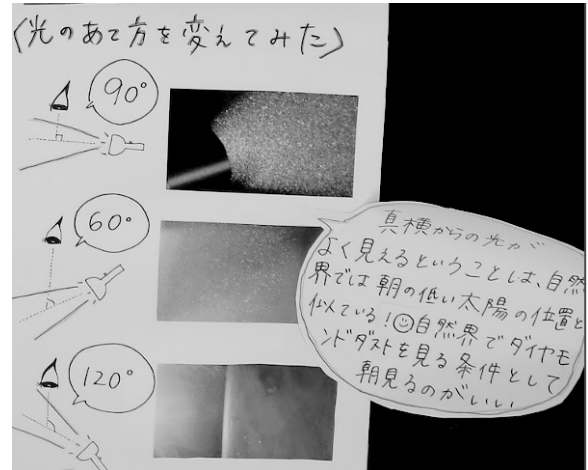 〈光のあて方を変えてみた〉
90°
60°
120°
真横からの光が
よく見えるということは、自然
界では朝の低い太陽の位置と
似ている!☺自然界でダイヤモ
ンドダストを見る条件として
朝見るのがいい